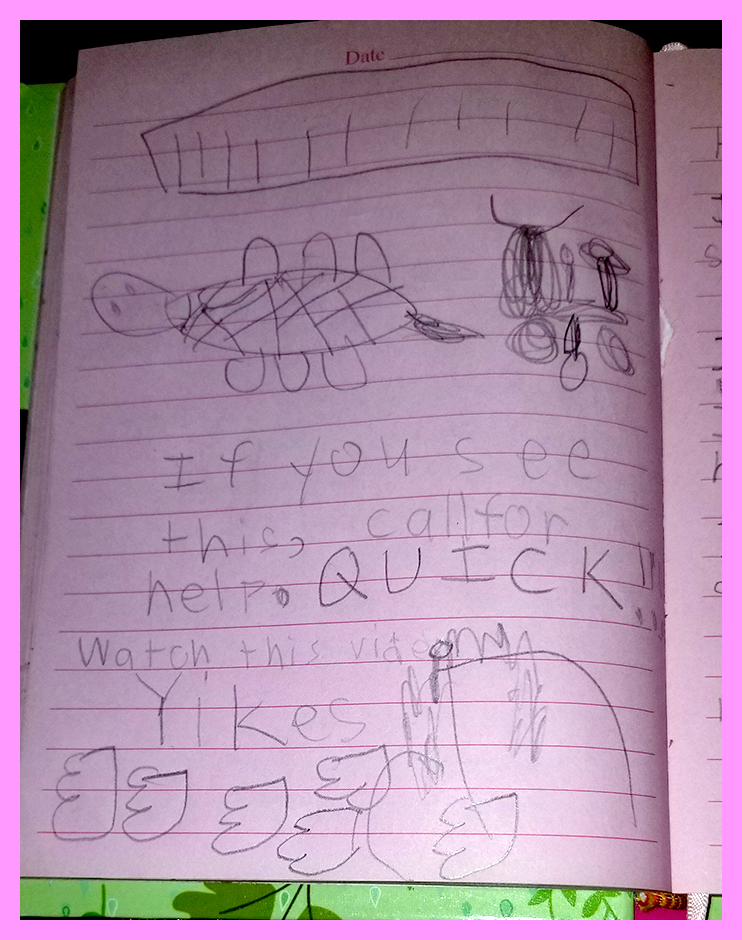 Date
If you see
this, call for
help. QUICK!!
Watch this video
Yikes